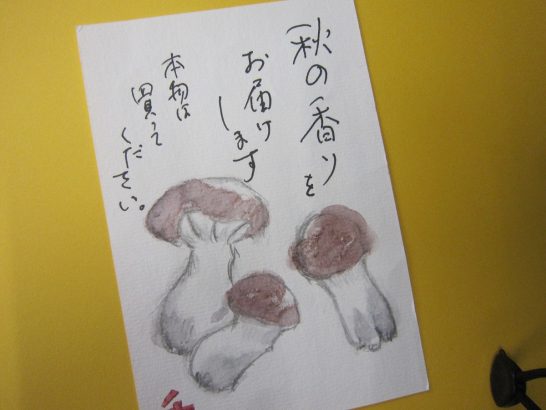 秋の香りを
お届け
します
本物は
買って
ください。